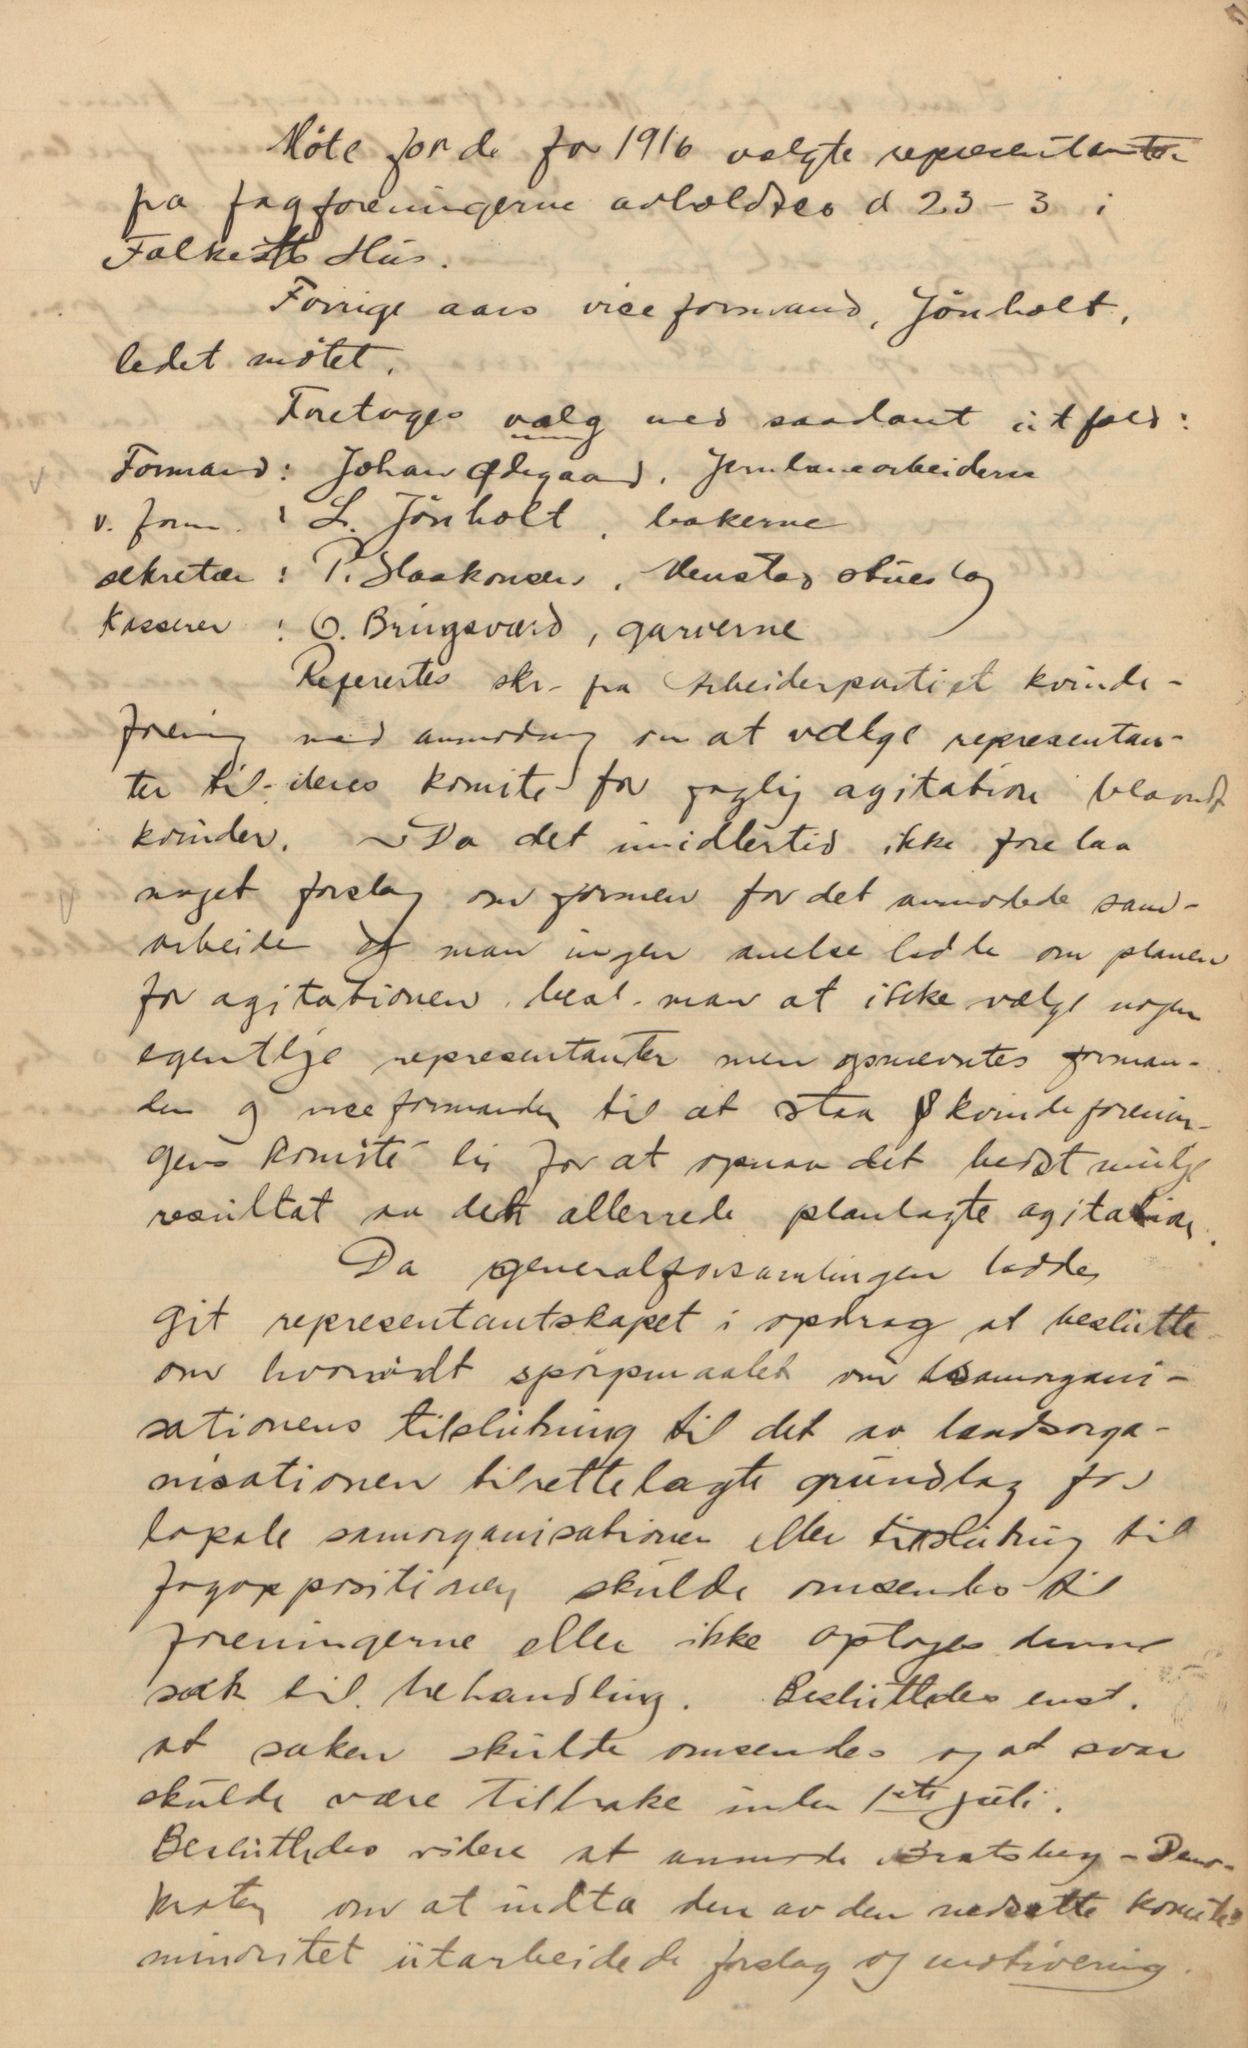 Möte for de for 1916 valgte representanter
fra fagforeningerne avholdtes d 23-3 i
Folkets Hus.
Forrige aars viceformand, Jönholt,
ledet mötet.
Foretoges valg med saadant utfald:
Formand: Johan Ødegaard, Jernbanearbeiderne
v. form. : L. Jönholt, bakerne
sekretær : P. Haakonsen, Menstad stueslag
Kasserer : O. Brugsværd, garverne
Refertes skr. fra Arbeiderpartiet kvinde-
forening med anmodning om at vælge representan-
ter til deres komite for faglig agitation blandt
kvinder. Da det imidlertid ikke forelaa
noget forslag om formen for det anmodede sam-
arbeide og man ingen anelse hadde om planen
for agitationen, besl. man at ikke vælge nogen
egentlige representanter men opnævntes forman-
den og viceformanden til at staa kvindeforenin-
gens komité bi for at opnaa det bedst mulige
resultat av den allerrede planlagte agitation.
Da generalforsamlingen hadde
git representantskapet i opdrag at beslutte
om hvorvidt spörgsmaalet om samorgani-
sationens tilslutning til det av landsorga-
nisationen tilrettelagte grundlag for
lokale samorganisationer eller tilslutning til
fagoppositionen skulde omsendes til
foreningerne eller ikke optoges denne
sak til behandling. Besluttedes enst.
at saken skulde omsendes og at svar
skulde være tilbake inden 1ste juli.
Besluttedes videre at anmode Bratsberg-Demo-
kraten om at indta den av den nedsatte komites
minoritet utarbeidede forslag og motivering.